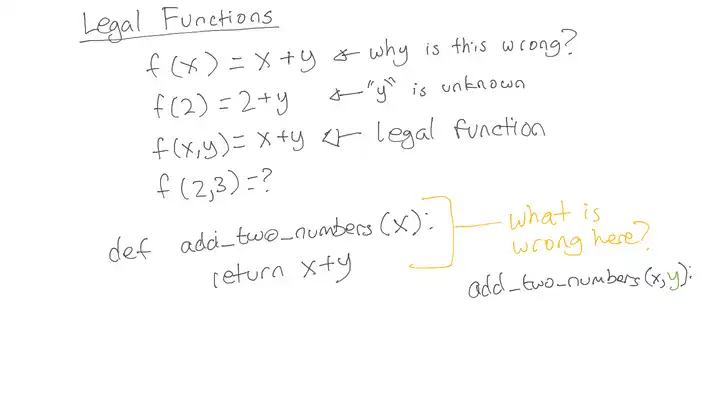 Legal Functions
f(x) = x+y ← why is this wrong?
f(2) = 2+y ← "y" is unknown
f(x,y) = x+y ← legal function
f(2,3) = ?
def add_two_numbers(x):
return x+y
what is
wrong here?
add_two_numbers(x,y):